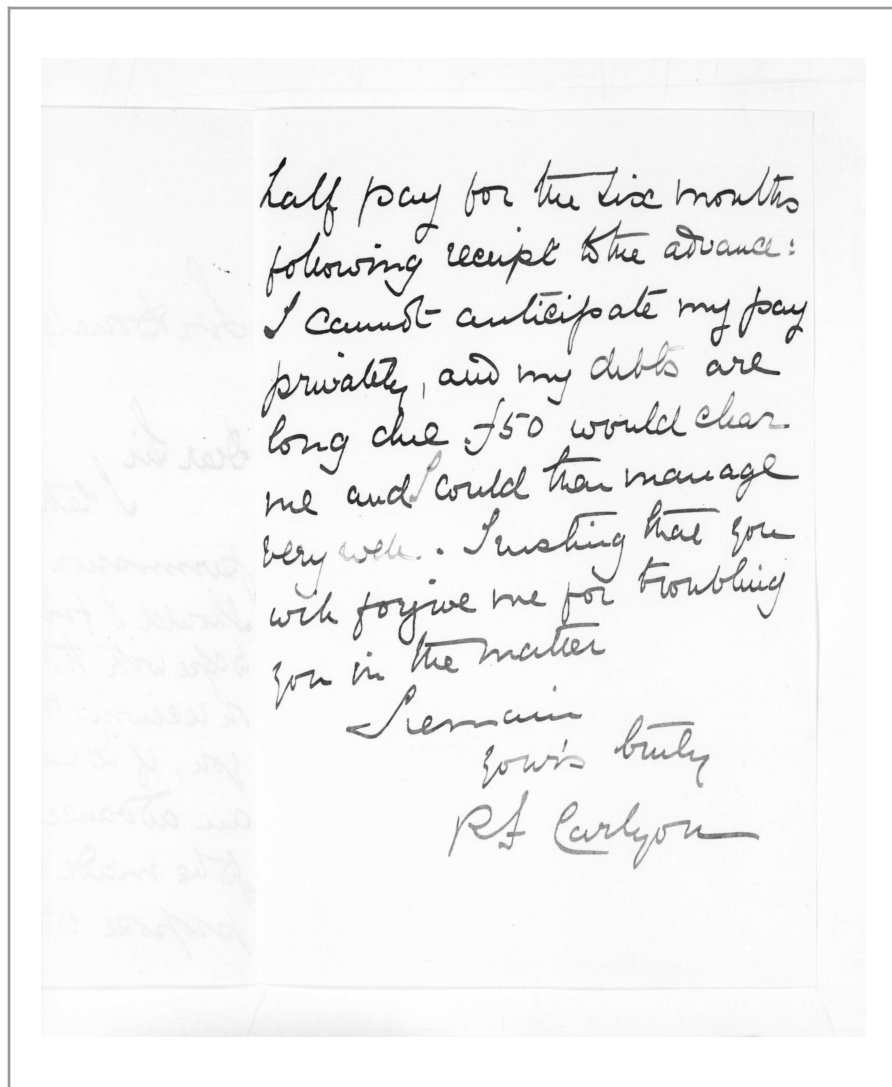 half pay for the six months
following receipt of the advance:
I cannot anticipate my pay
privately, and my debts are
long due. £50 would clear
me and I could then manage
very well. Trusting that you
will forgive me for troubling
you in the matter
I remain
yours truly
RF Carlyon